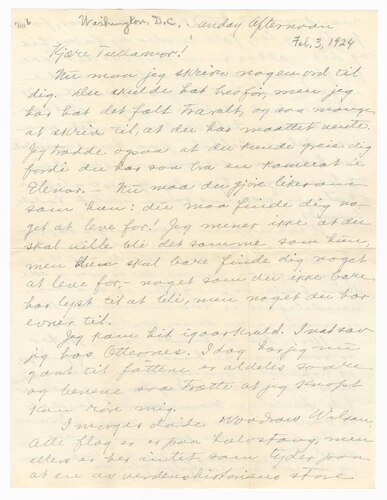 Washington, D.C. Sunday Afternoon
Feb. 3, 1924
Kjære Tullamor!
Nu maa jeg skrive nogen ord til
dig. Du skulde hat brev før, men jeg
har hat det fælt travlt, og saa mange
at skrive til, at du har maattet vente.
Jeg trodde ogsaa at du kunde greie dig
fordi du har saa bra en kamerat i
Elenor. — Nu maa du gjøre likesom
som han: du maa finde dig no-
get at leve for! Jeg mener ikke at du
skal ville bli det samme som hun,
men du skal bare finde dig noget
at leve for, — noget som du ikke bare
har lyst til at bli, men noget du har
evner til.
Jeg kom hit igaar kveld. I nat sov
jeg hos Otternes. I dag har jeg
gaat til føttene er aldeles saare
og benene saa trætte at jeg knapt
kan røre mig.
I morges døde Woodrow Wilson.
Alle flag er er paa halvstang, men
ellers er her intet som tyder paa
at en av verdenshistoriens store